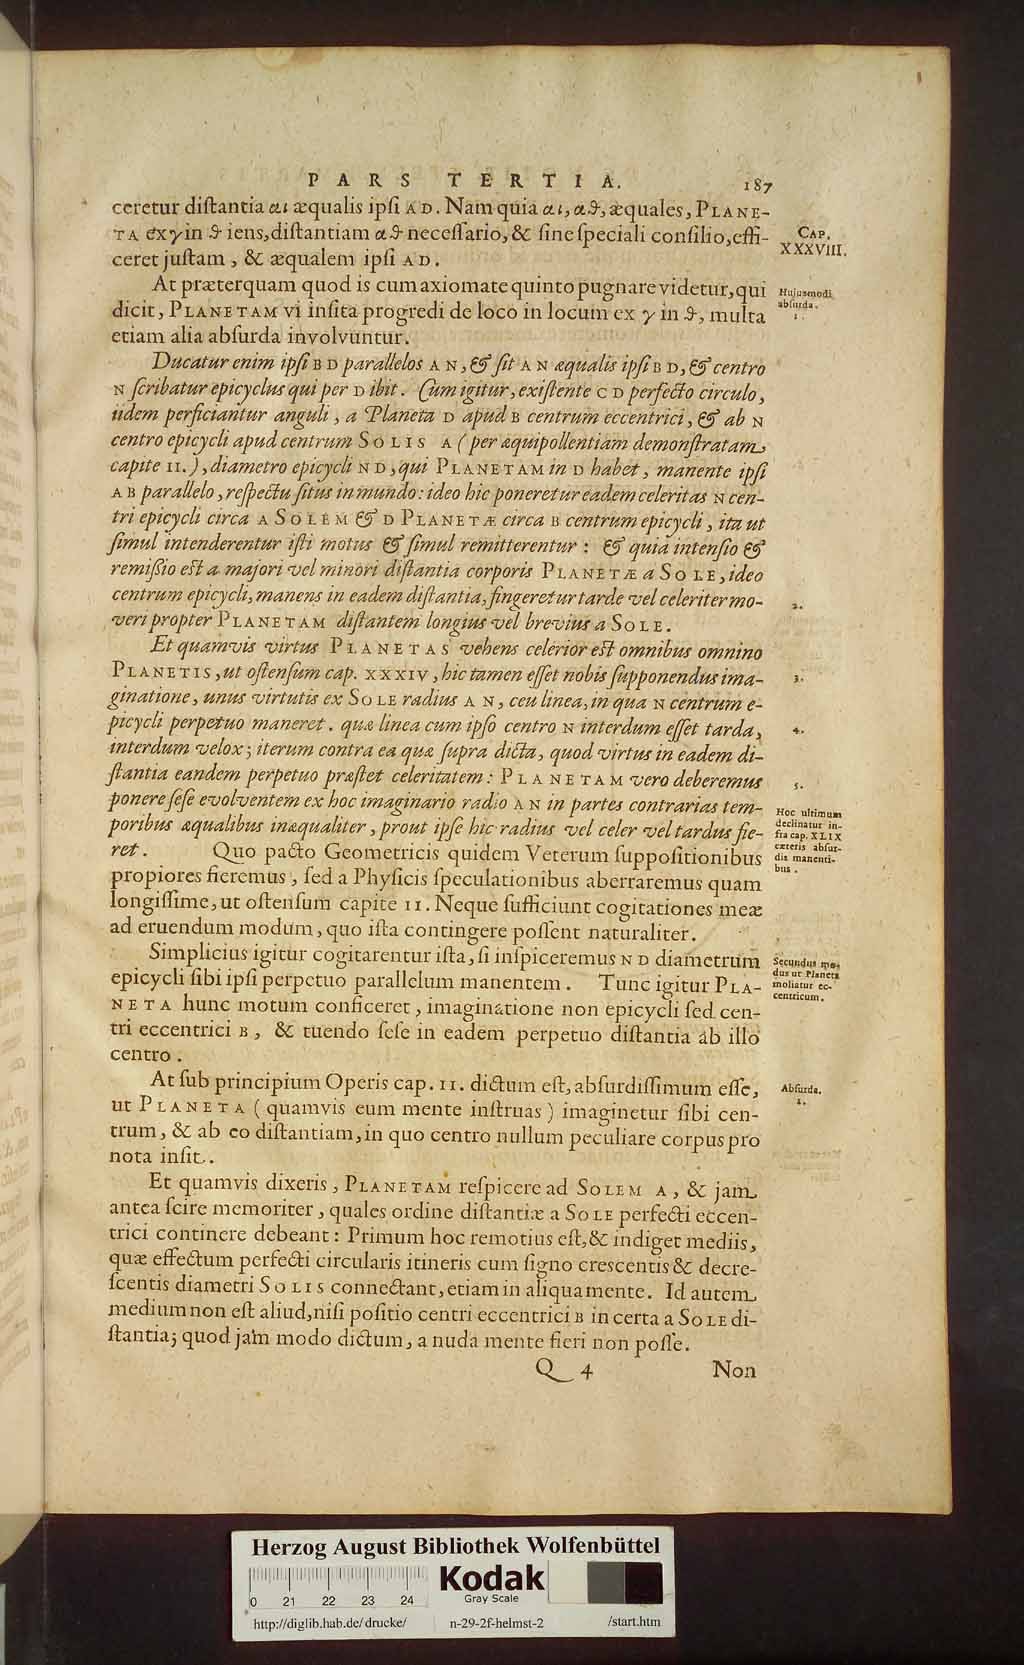 PARS TERTIA. 187
ceretur diſtantia αι æqualis ipſi AD. Nam quia αι, αϑ, æquales, PLANE-
TA ex γ in ϑ iens, diſtantiam αϑ neceſſario, & ſine ſpeciali conſilio, effi-
ceret juſtam, & æqualem ipſi AD.
CAP.
XXXVIII.
At præterquam quod is cum axiomate quinto pugnare videtur, qui
dicit, PLANETAM vi inſita progredi de loco in locum ex γ in ϑ, multa
etiam alia abſurda involvuntur.
Hujusmodi
abſurda.
1.
Ducatur enim ipſi BD parallelos AN, & ſit AN æqualis ipſi BD, & centro
N ſcribatur epicyclus qui per D ibit. Cum igitur, exiſtente CD perfecto circulo,
iidem perficiantur anguli, a Planeta D apud B centrum eccentrici, & ab N
centro epicycli apud centrum SOLIS A (per æquipollentiam demonſtratam
capite II.), diametro epicycli ND, qui PLANETAM in D habet, manente ipſi
AB parallelo, reſpectu ſitus in mundo: ideo hic poneretur eadem celeritas N cen-
tri epicycli circa A SOLEM & D PLANETÆ circa B centrum epicycli, ita ut
ſimul intenderentur iſti motus & ſimul remitterentur: & quia intenſio &
remißio eſt a majori vel minori diſtantia corporis PLANETÆ a SOLE, ideo
centrum epicycli, manens in eadem diſtantia, fingeretur tarde vel celeriter mo-
veri propter PLANETAM diſtantem longius vel brevius a SOLE.
2.
Et quamvis virtus PLANETAS vehens celerior eſt omnibus omnino
PLANETIS, ut oſtenſum cap. XXXIV, hic tamen eſſet nobis ſupponendus ima-
ginatione, unus virtutis ex SOLE radius AN, ceu linea, in qua N centrum e-
picycli perpetuo maneret. quæ linea cum ipſo centro N interdum eſſet tarda,
interdum velox; iterum contra ea quæ ſupra dicta, quod virtus in eadem di-
ſtantia eandem perpetuo præſtet celeritatem: PLANETAM vero deberemus
ponere ſeſe evolventem ex hoc imaginario radio AN in partes contrarias tem-
poribus æqualibus inæqualiter, prout ipſe hic radius vel celer vel tardus fie-
ret. Quo pacto Geometricis quidem Veterum ſuppoſitionibus
propiores fieremus, ſed a Phyſicis ſpeculationibus aberraremus quam
longiſſime, ut oſtenſum capite II. Neque ſufficiunt cogitationes meæ
ad eruendum modum, quo iſta contingere poſſent naturaliter.
3.
4.
5.
Hoc ultimum
declinatur in-
fra cap. XLIX
cæteris abſur-
dis manenti-
bus.
Simplicius igitur cogitarentur iſta, ſi inſpiceremus ND diametrum
epicycli ſibi ipſi perpetuo parallelum manentem. Tunc igitur PLA-
NETA hunc motum conficeret, imaginatione non epicycli ſed cen-
tri eccentrici B, & tuendo ſeſe in eadem perpetuo diſtantia ab illo
centro.
Secundus mo-
dus ut Planeta
moliatur ec-
centricum.
At ſub principium Operis cap. II. dictum eſt, abſurdiſſimum eſſe,
ut PLANETA (quamvis eum mente inſtruas) imaginetur ſibi cen-
trum, & ab eo diſtantiam, in quo centro nullum peculiare corpus pro
nota inſit.
Abſurda.
1.
Et quamvis dixeris, PLANETAM reſpicere ad SOLEM A, & jam
antea ſcire memoriter, quales ordine diſtantiæ a SOLE perfecti eccen-
trici continere debeant: Primum hoc remotius eſt, & indiget mediis,
quæ effectum perfecti circularis itineris cum ſigno creſcentis & decre-
ſcentis diametri SOLIS connectant, etiam in aliqua mente. Id autem
medium non eſt aliud, niſi poſitio centri eccentrici B in certa a SOLE di-
ſtantia; quod jam modo dictum, a nuda mente fieri non poſſe.
Q 4 Non
Herzog August Bibliothek Wolfenbüttel
0 21 22 23 24
Kodak
Gray Scale
http://diglib.hab.de/drucke/ n-29-2f-helmst-2 /start.htm